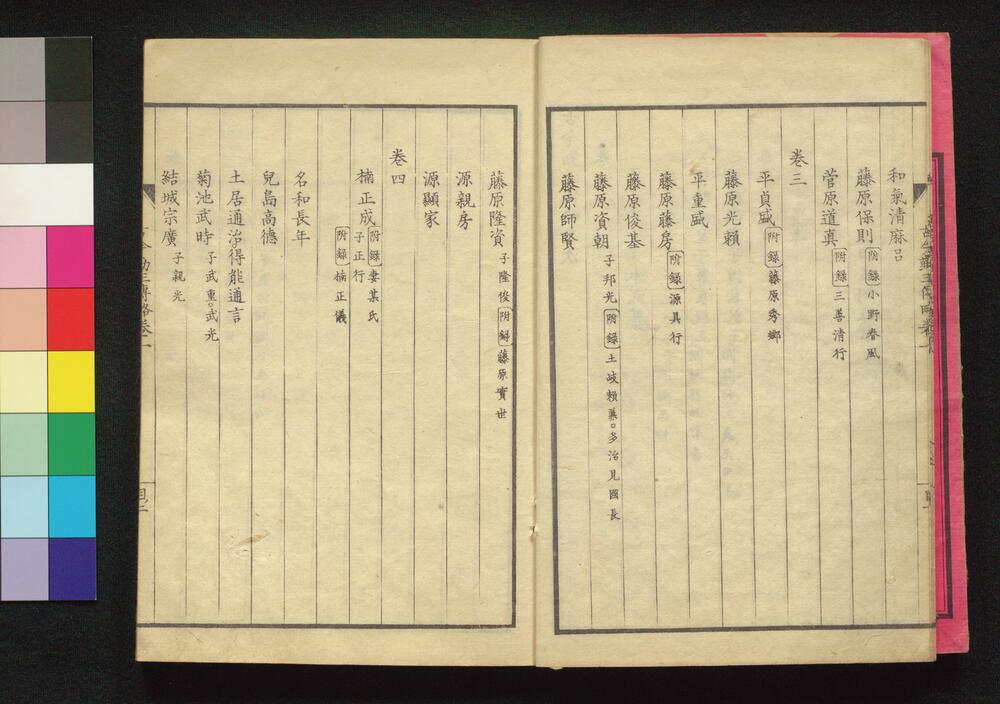 和氣清麻呂
藤原保則 附錄 小野春風
菅原道真 附錄 三善清行
卷三
平貞盛 附錄 藤原秀鄉
藤原光賴
平重盛
藤原藤房 附錄 源具行
藤原俊基
藤原資朝 子邦光 附錄 土岐賴兼○多治見國長
藤原師賢
藤原隆資 子隆俊 附錄 藤原實世
源親房
源顯家
卷四
楠正成 附錄 妻某氏
子正行 附錄 楠正儀
名和長年
兒島高德
土居通治得能通言
菊池武時 子武重○武光
結城宗廣 子親光